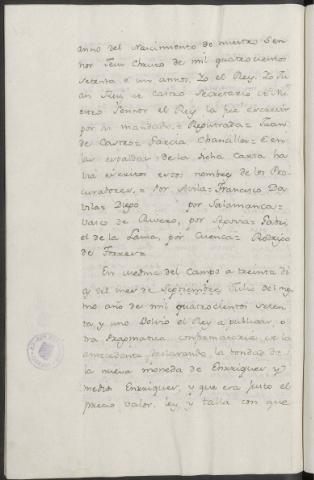 anno del Nascimiento de nuestro Sen-
hor Jesu Christo de mil quatrocientos
setenta e un annos. Yo el Rey. Yo Ju
an Ruiz de Castro Secretario de Nu
estro Sennor el Rey la fiz escrevir
por su mandado = Registrada = Juan
de Castro = Garcia Chanciller = E en
las espaldas de la dicha Carta ha
via escritos estos nombres de los Pro
curadores = Por Avila = Francisco Da
vila = Diego por Salamanca =
Vasco de Rivero, por Segovia = Gabri
el de la Lama, por Cuenca = Rodrigo
de
En Medina del Campo a treinta di
as del mes de Septiembre del mis
mo año de mil quatrocientos seten
ta, y uno Bolvio el Rey a publicar o
tra Pragmatica confirmatoria de la
antecedente declarando la bondad de
la nueva moneda de Enrriques, y
medios Enrriques, y que era justo el
precio valor, ley, y talla con que